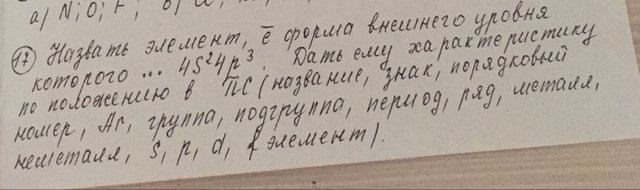 а) N; O; F; б)
17 Назвать элемент, ē форма внешнего уровня
которого ... 4S²4p³. Дать ему характеристику
по положению в ПС (название, знак, порядковый
номер, Ar, группа, подгруппа, период, ряд, металл,
неметалл, s, p, d, f элемент).